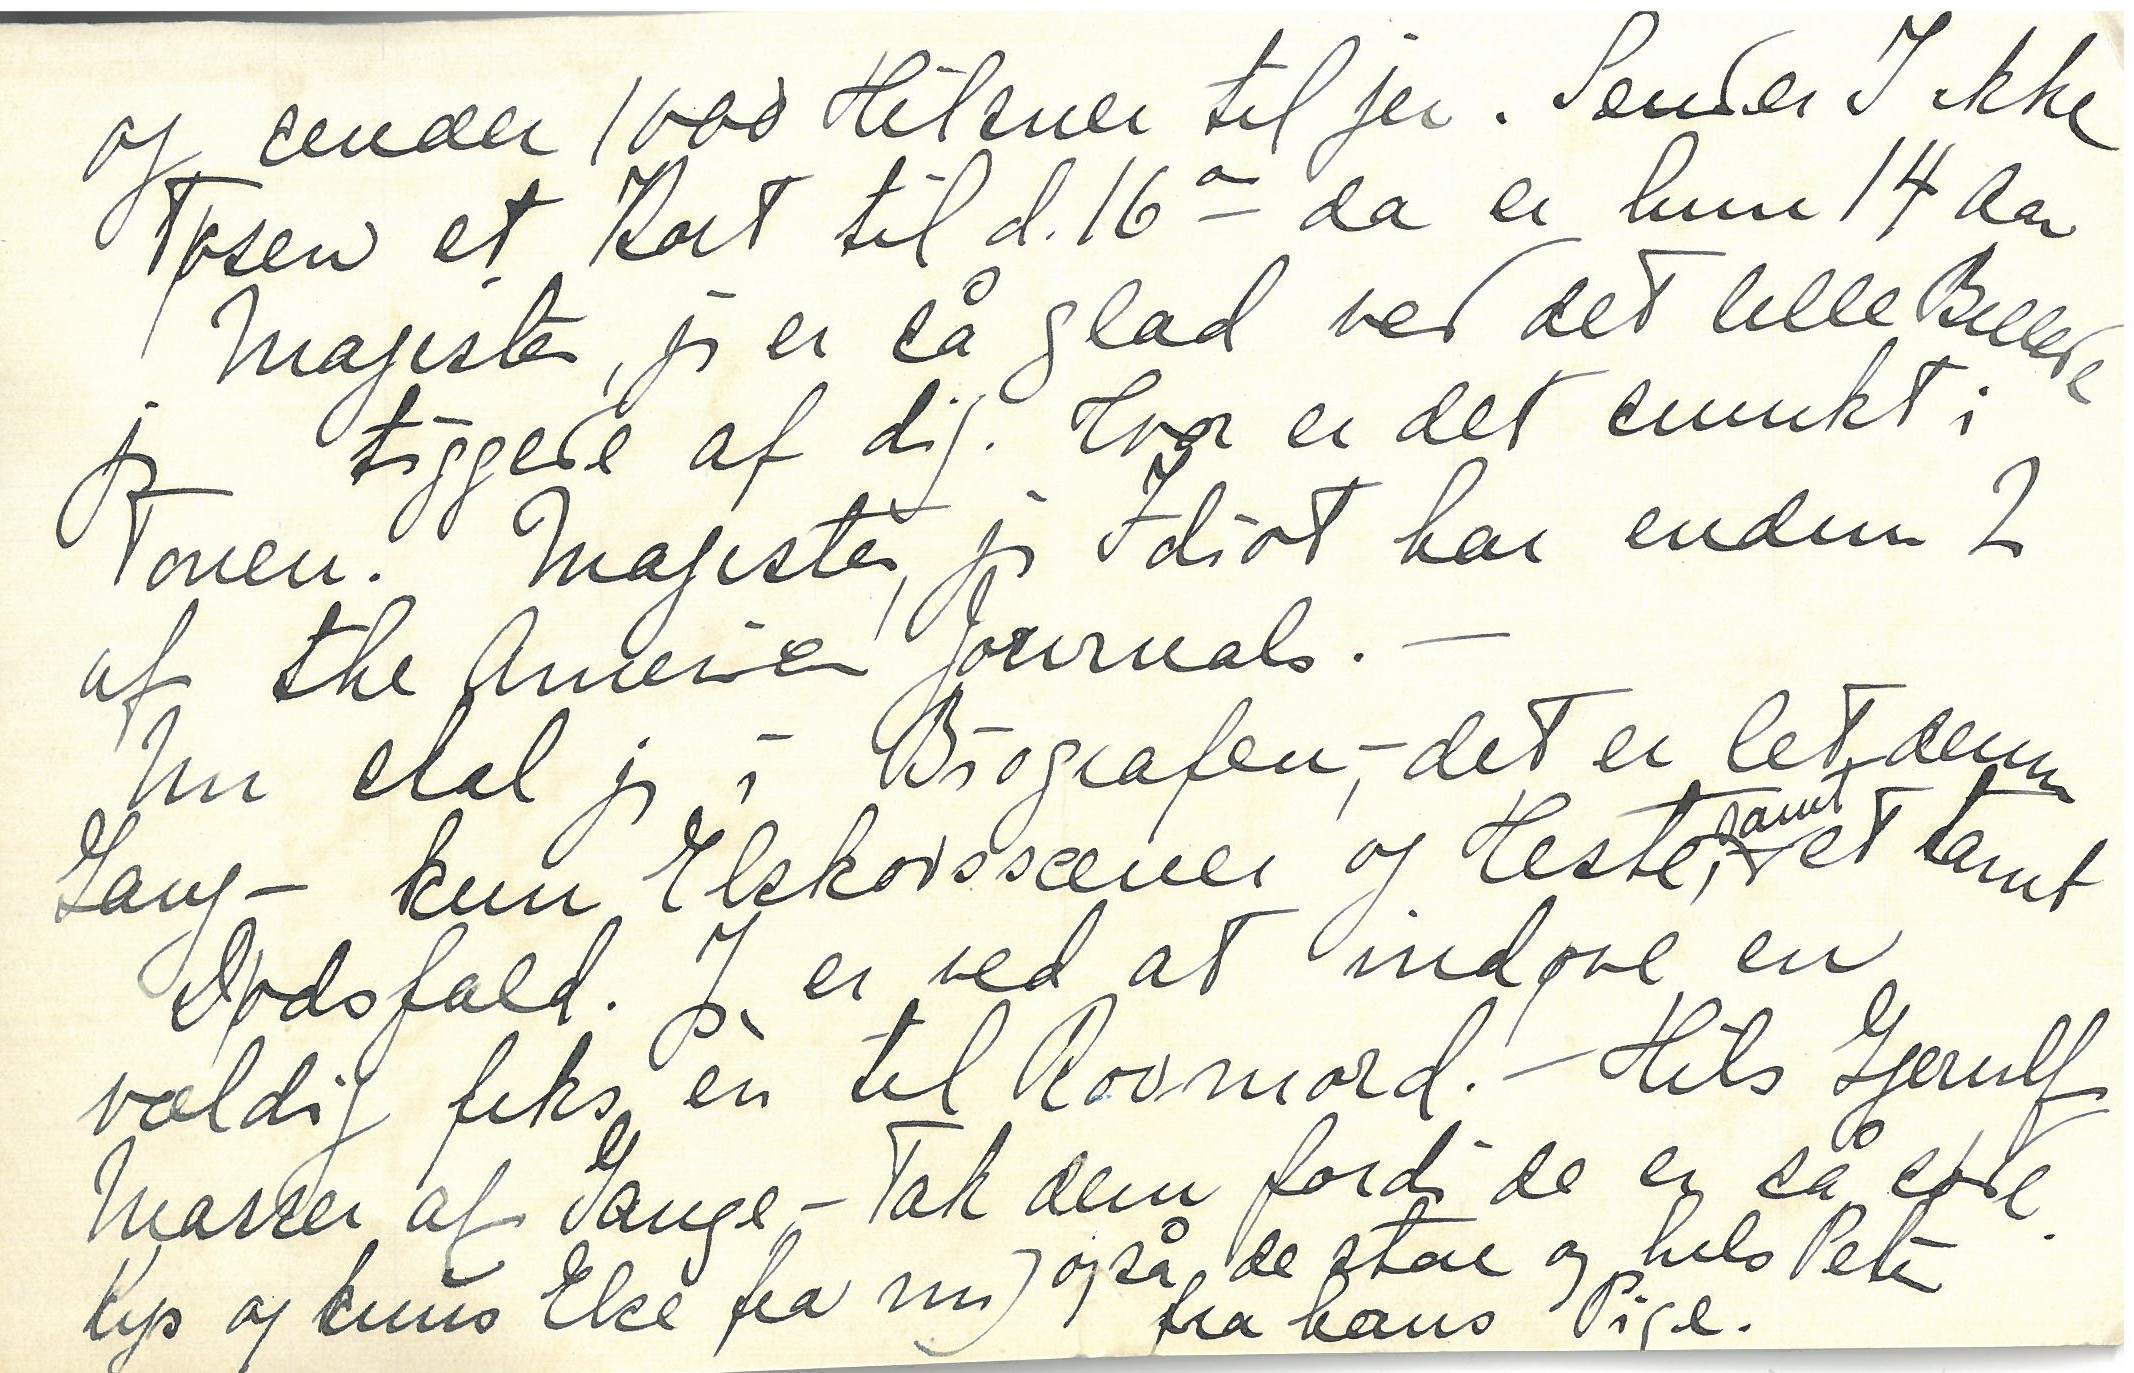 og sender 1000 Hilsner til jer. Sender I ikke
Tøsen et Kort til d. 16 da er hun 14 Aar
Magister, jeg er så glad ved det lille Billede
jeg tiggede af dig. Hvor er det smukt i
Tonen. Magister, jeg Idiot har endnu 2
af the American Journals. –
Nu skal jeg i Biografen, – det er let denne
Gang – kun Elskovsscener og Heste, – samt et tamt
Dødsfald. Jeg er ved at indøve en
vældig feks en til Rovmord. – Hils Gjerulf
Masser af Gange – Tak dem fordi de er så søde.
Kys og knus Else fra mig også de store og hils Peter
fra hans Pige.